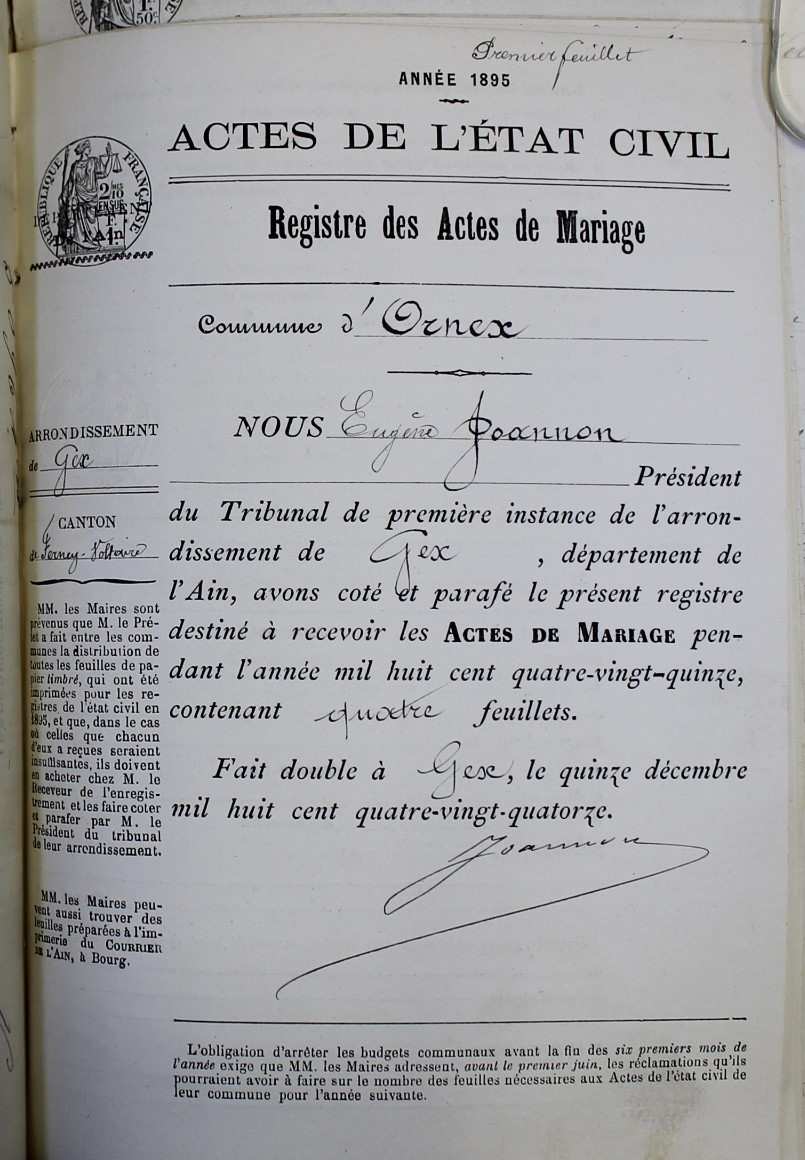 Premier feuillet
ANNÉE 1895
ACTES DE L'ÉTAT CIVIL
RÉPUBLIQUE FRANÇAISE
2/10
EN SUS
F.
l'Ain
Registre des Actes de Mariage
Commune d'Ornex
NOUS Eugène Joannon
Président
du Tribunal de première instance de l'arron-
dissement de Gex, département de
l'Ain, avons coté et parafé le présent registre
destiné à recevoir les ACTES DE MARIAGE pen-
dant l'année mil huit cent quatre-vingt-quinze,
contenant quatre feuillets.
Fait double à Gex, le quinze décembre
mil huit cent quatre-vingt-quatorze.
Joannon
ARRONDISSEMENT
de Gex
CANTON
de Ferney-Voltaire
MM. les Maires sont
prévenus que M. le Pré-
fet a fait entre les com-
munes la distribution de
toutes les feuilles de pa-
pier timbré, qui ont été
imprimées pour les re-
gistres de l'état civil en
1895, et que, dans le cas
où celles que chacun
d'eux a reçues seraient
insuffisantes, ils doivent
en acheter chez M. le
Receveur de l'enregis-
trement et les faire coter
et parafer par M. le
Président du tribunal
de leur arrondissement.
MM. les Maires peu-
vent aussi trouver des
feuilles préparées à l'im-
primerie du COURRIER
DE L'AIN, à Bourg.
L'obligation d'arrêter les budgets communaux avant la fin des six premiers mois de
l'année exige que MM. les Maires adressent, avant le premier juin, les réclamations qu'ils
pourraient avoir à faire sur le nombre des feuilles nécessaires aux Actes de l'état civil de
leur commune pour l'année suivante.